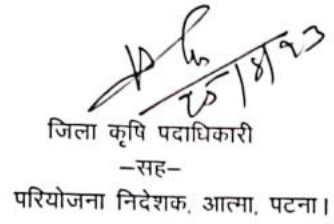 जिला कृषि पदाधिकारी
–सह–
परियोजना निदेशक, आत्मा, पटना।